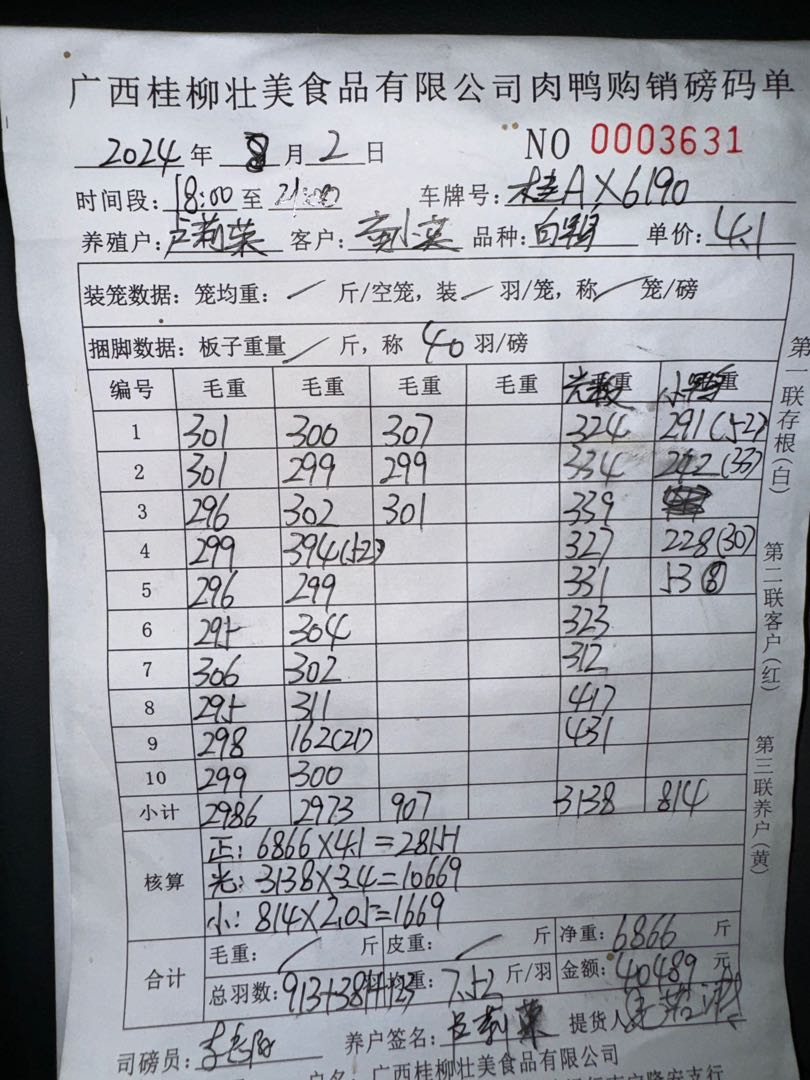 广西桂柳壮美食品有限公司肉鸭购销磅码单
2024 年 8 月 2 日 NO 0003631
时间段: 18:00 至 21:00 车牌号: 桂AX6190
养殖户: 客户: 品种: 白鸭 单价: 4.1
装笼数据: 笼均重: / 斤/空笼, 装 / 羽/笼, 称 / 笼/磅
捆脚数据: 板子重量 / 斤, 称 40 羽/磅
编号 毛重 毛重 毛重 毛重 重 小鸭重
1 301 300 307 324 291(52)
2 301 299 299 334 242(33)
3 296 302 301 339
4 299 394(52) 327 228(30)
5 296 299 331 53⑧
6 295 304 323
7 306 302 312
8 295 311 417
9 298 162(21) 431
10 299 300
小计 2986 2973 907 3138 814
核算
正: 6866×4.1=28151
光: 3138×3.4=10669
小: 814×2.05=1669
合计
毛重: / 斤 皮重: / 斤 净重: 6866 斤
总羽数: 913+381+123 均重: 7.52 斤/羽 金额: 40489 元
司磅员: 养户签名: 提货人
户名: 广西桂柳壮美食品有限公司
第一联存根(白)
第二联客户(红)
第三联养户(黄)